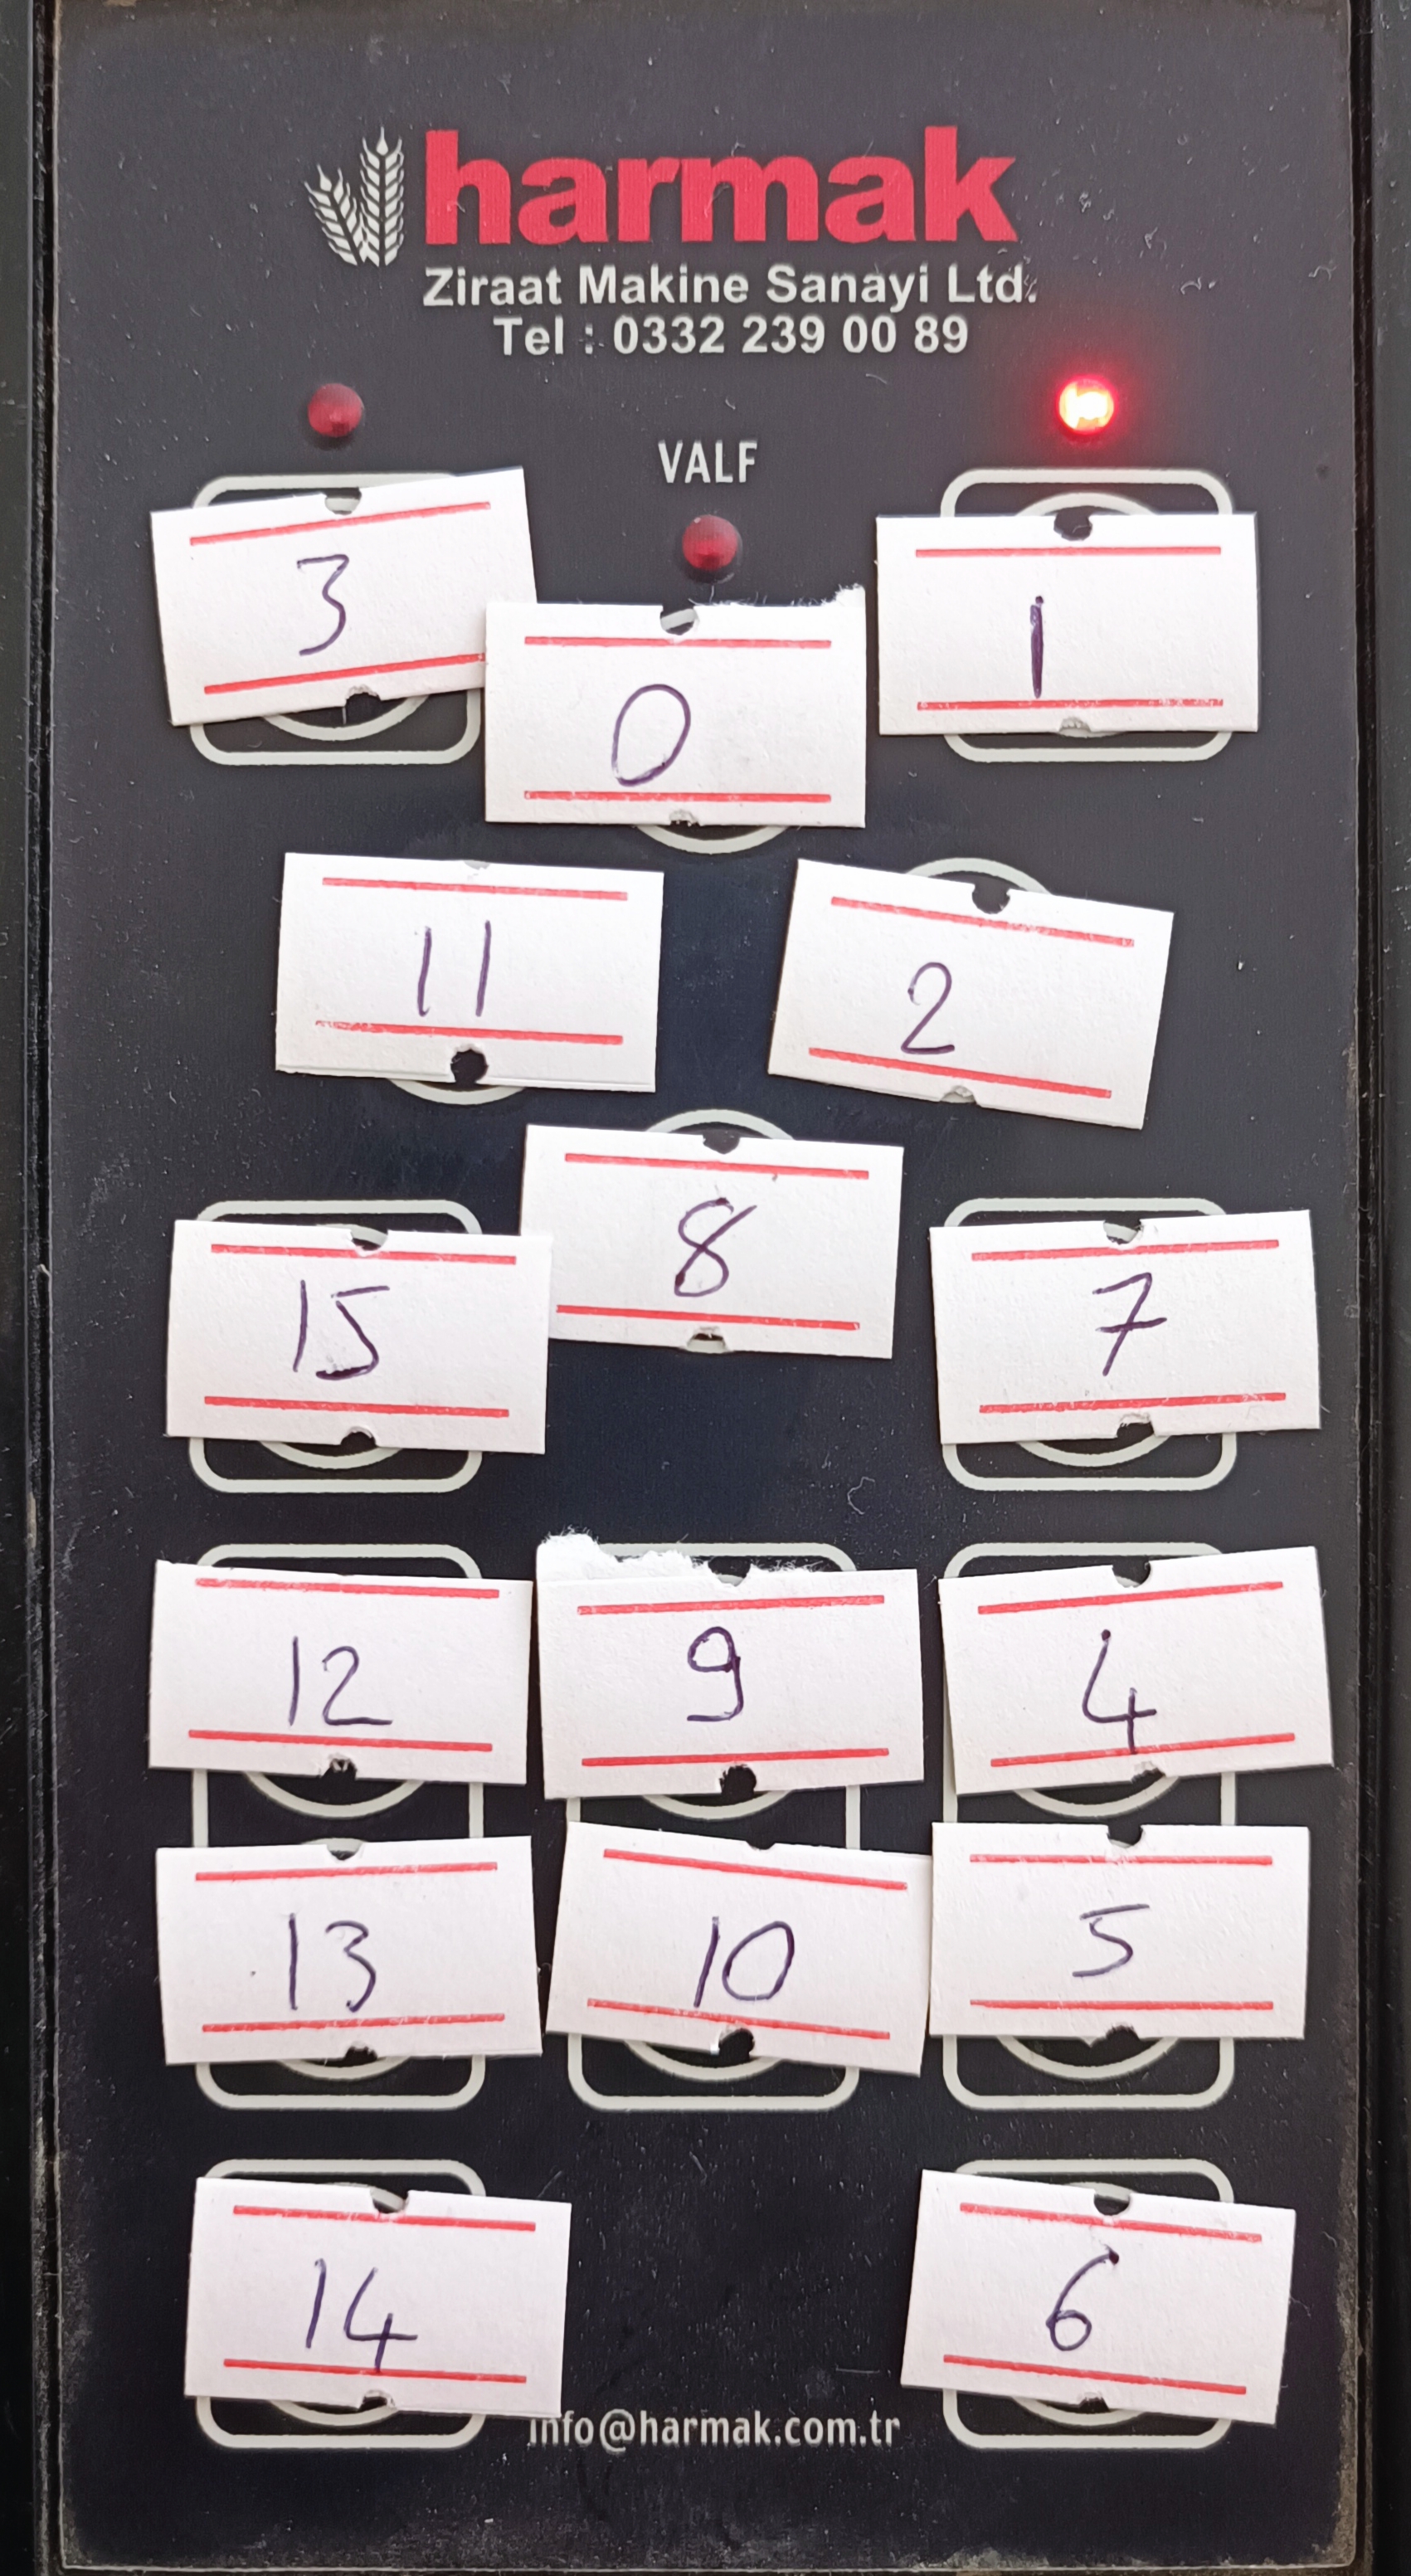 harmak
Ziraat Makine Sanayi Ltd.
Tel : 0332 239 00 89
VALF
3
0
1
11
2
8
15
7
12
9
4
13
10
5
14
6
info@harmak.com.tr